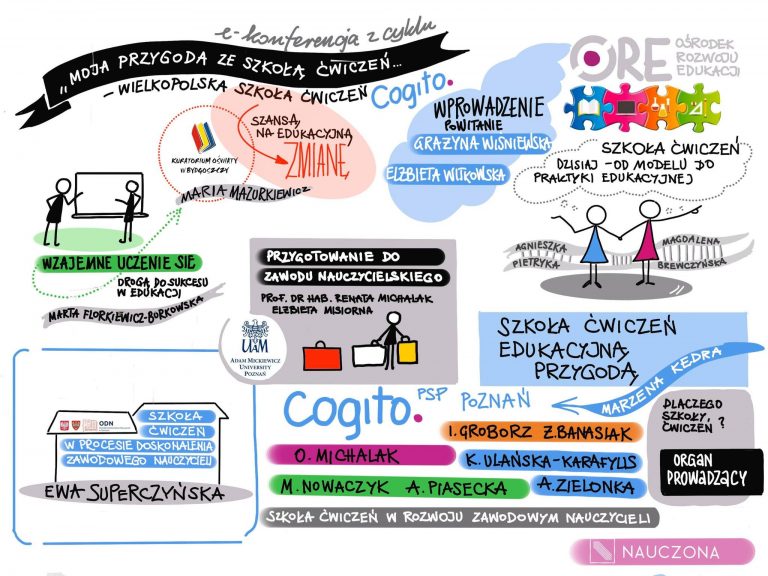 e-konferencja z cyklu
„MOJA PRZYGODA ZE SZKOŁĄ ĆWICZEŃ...
– WIELKOPOLSKA SZKOŁA ĆWICZEŃ Cogito.
SZANSĄ
NA EDUKACYJNĄ
ZMIANĘ
KURATORIUM OŚWIATY
W BYDGOSZCZY
MARIA MAZURKIEWICZ
WPROWADZENIE
POWITANIE
GRAŻYNA WIŚNIEWSKA
ELŻBIETA WITKOWSKA
ORE OŚRODEK
ROZWOJU
EDUKACJI
SZKOŁA ĆWICZEŃ
DZISIAJ – OD MODELU DO
PRAKTYKI EDUKACYJNEJ
AGNIESZKA
PIETRYKA
MAGDALENA
BREWCZYŃSKA
WZAJEMNE UCZENIE SIĘ
DROGĄ DO SUKCESU
W EDUKACJI
MARTA FLORKIEWICZ-BORKOWSKA
PRZYGOTOWANIE DO
ZAWODU NAUCZYCIELSKIEGO
PROF. DR HAB. RENATA MICHALAK
ELŻBIETA MISIORNA
UAM
ADAM MICKIEWICZ
UNIVERSITY
POZNAŃ
SZKOŁA ĆWICZEŃ
EDUKACYJNĄ
PRZYGODĄ
MARZENA KĘDRA
Cogito. PSP POZNAŃ
I. GROBORZ Z. BANASIAK
O. MICHALAK
K. UŁAŃSKA-KARAFYLIS
M. NOWACZYK A. PIASECKA
A. ZIELONKA
SZKOŁA ĆWICZEŃ W ROZWOJU ZAWODOWYM NAUCZYCIELI
DLACZEGO
SZKOŁY
ĆWICZEŃ ?
ORGAN
PROWADZĄCY
ODN
SZKOŁA
ĆWICZEŃ
W PROCESIE DOSKONALENIA
ZAWODOWEGO NAUCZYCIELI
EWA SUPERCZYŃSKA
NAUCZONA